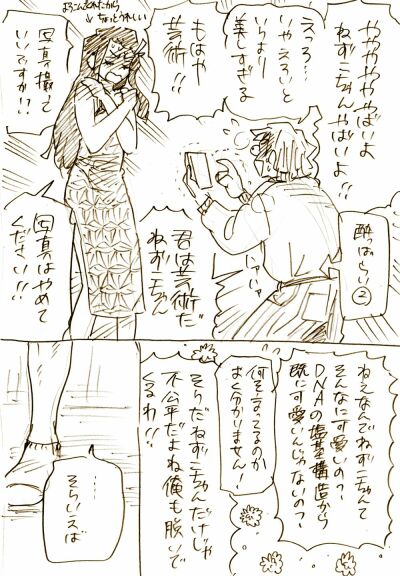 酔っぱらい②
ややややばいよ
ねずこちゃん
やばいよ!!
えっろ…
いやえろいと
いうより
美しすぎる
もはや
芸術!!
よろこんでくれたから
ちょっとうれしい
写真撮って
いいですか!?
ハァハァ
君は芸術だ
ねずこちゃん
写真はやめて
ください!!
ねえなんでねずこちゃんて
そんなに可愛いの?
DNAの塩基構造から
既に可愛いんじゃないの?
何を言ってるのか
よく分かりません!
そうだねずこちゃんだけじゃ
不公平だよね俺も脱いで
くるわ!!
……
そういえば